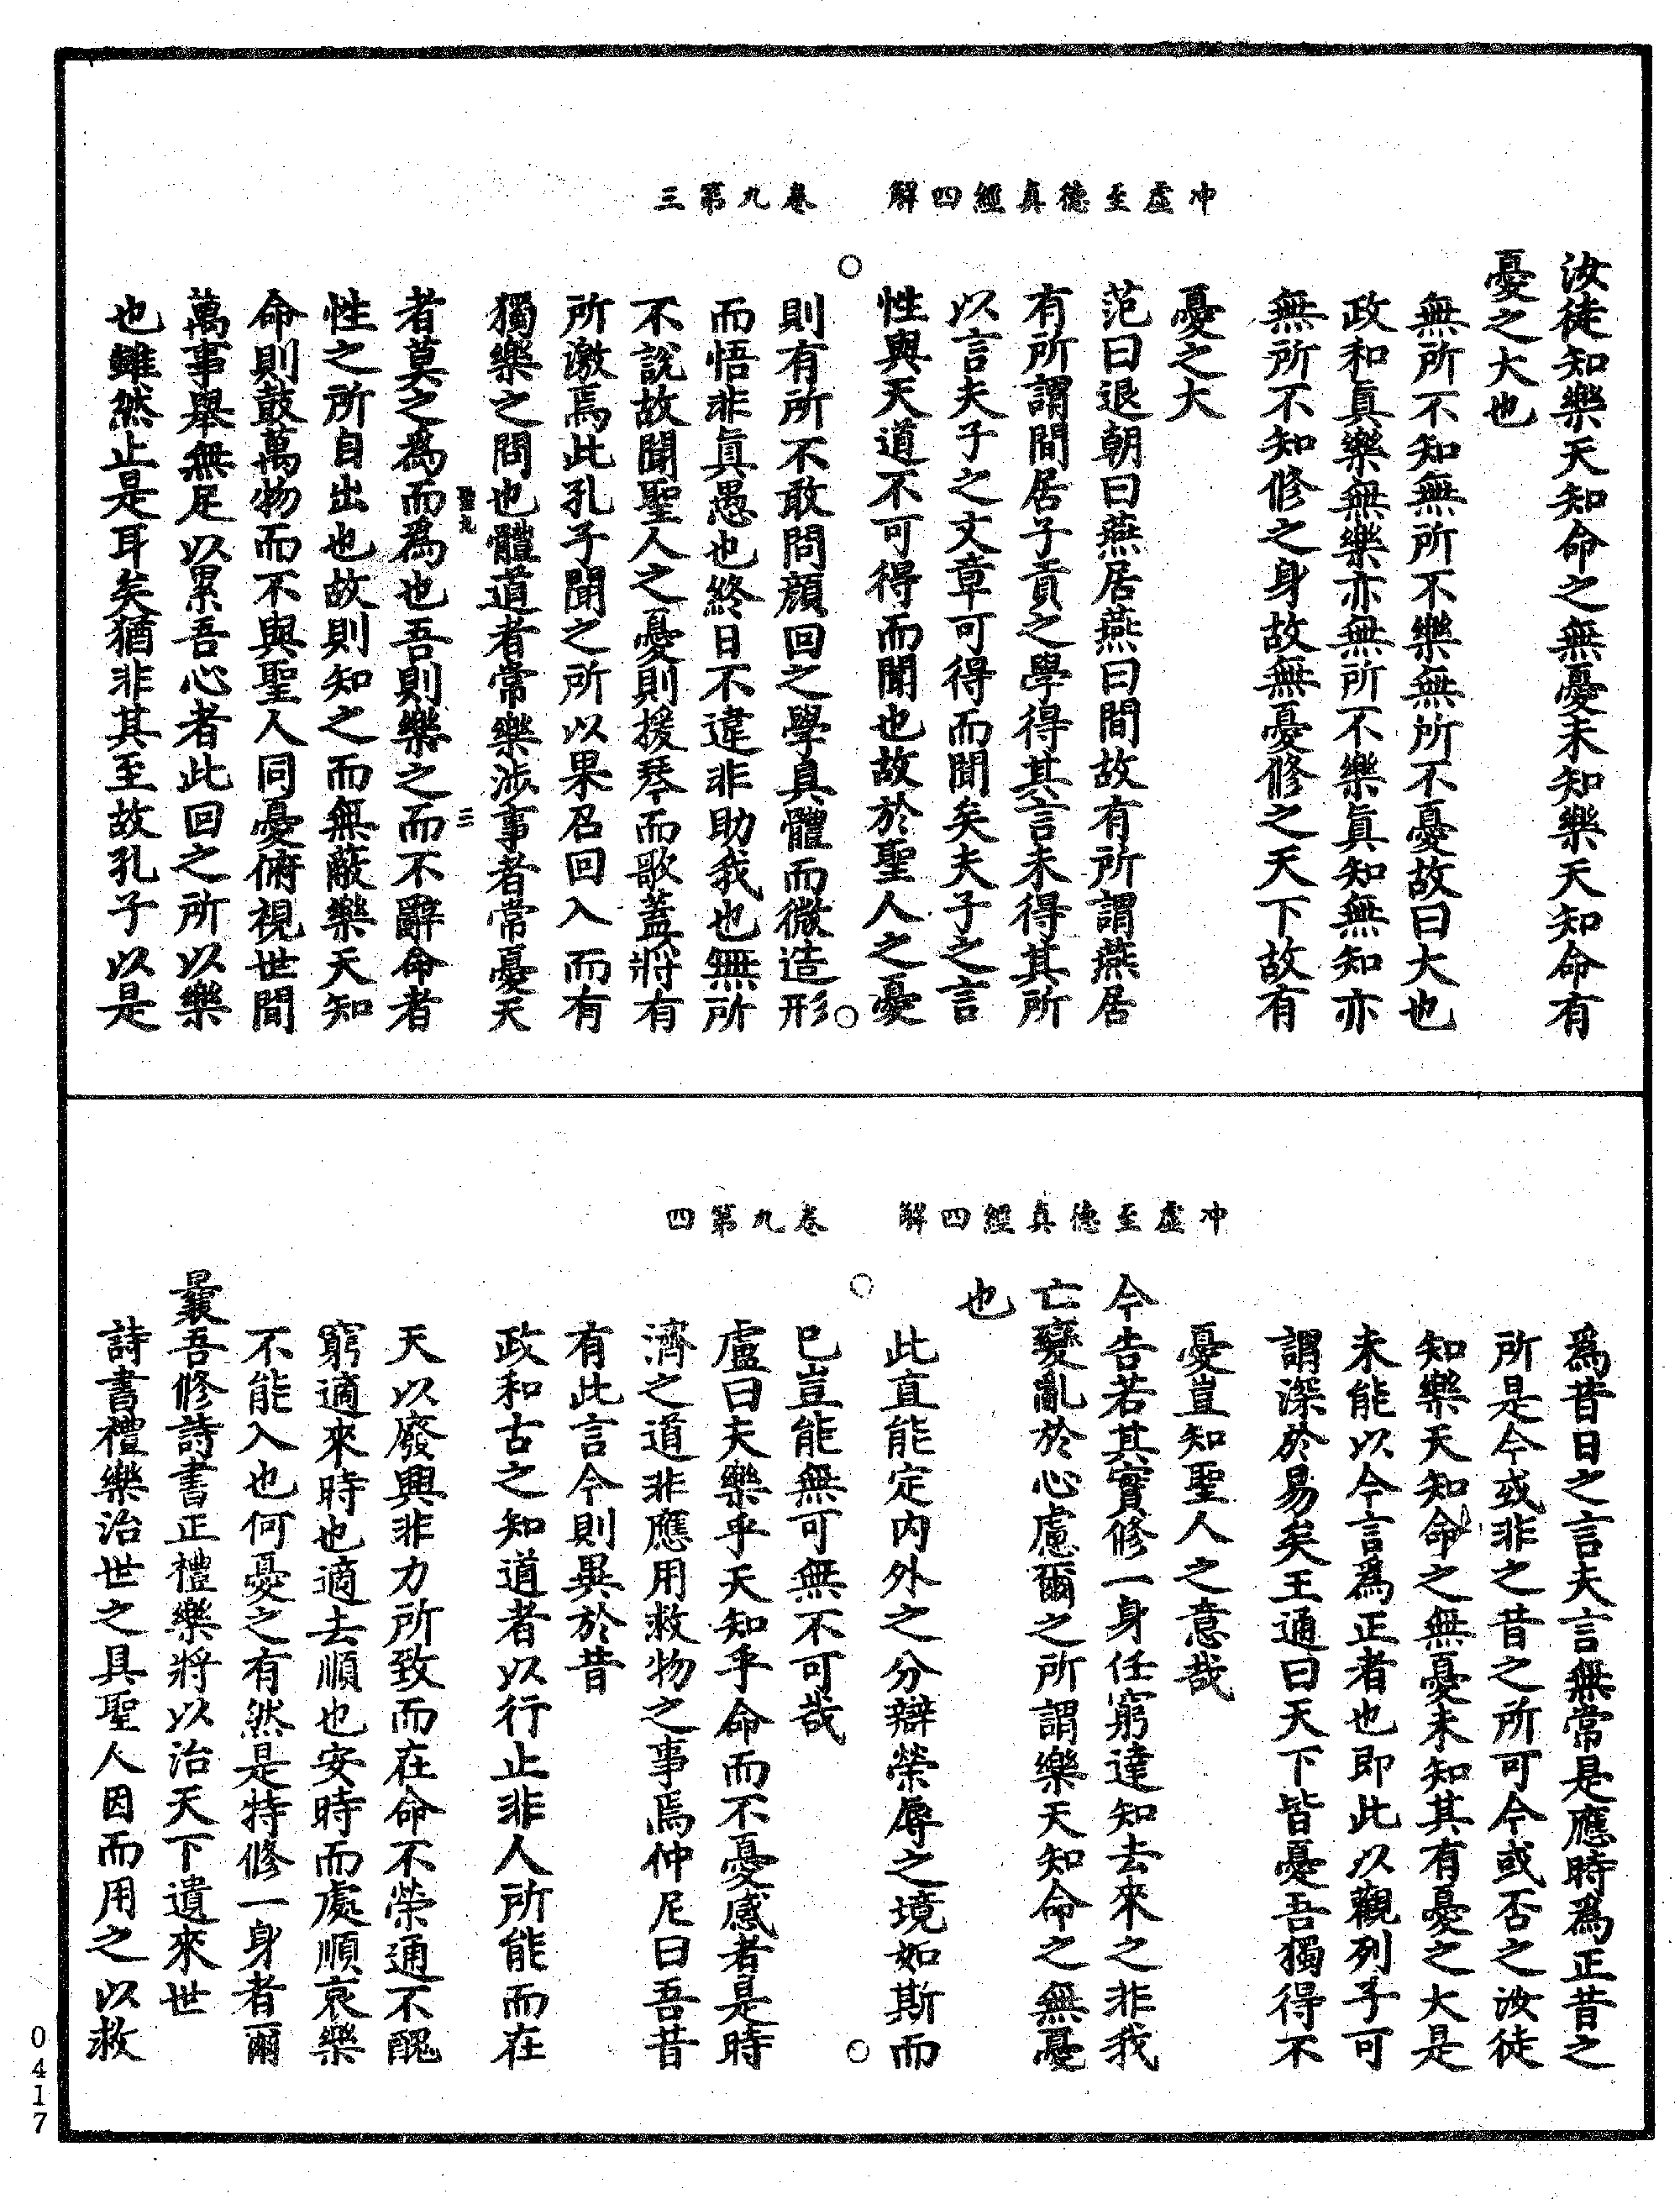 冲虛至德真經四解　卷九第三
汝徒知樂天知命之無憂未知樂天知命有
憂之大也
無所不知無所不樂無所不憂故曰大也
政和真樂無樂亦無所不樂真知無知亦
無所不知修之身故無憂修之天下故有
憂之大
范曰退朝曰燕居燕曰間故有所謂燕居
有所謂間居子貢之學得其言未得其所
以言夫子之文章可得而聞矣夫子之言
性與天道不可得而聞也故於聖人之憂
則有所不敢問顏回之學具體而微造形
而悟非真愚也終日不違非助我也無所
不說故聞聖人之憂則援琴而歌蓋將有
所激焉此孔子聞之所以果召回入而有
獨樂之問也體道者常樂涉事者常憂天
三
者莫之為而為也吾則樂之而不辭命者
性之所自出也故則知之而無蔽樂天知
命則鼓萬物而不與聖人同憂俯視世間
萬事舉無足以累吾心者此回之所以樂
也雖然止是耳矣猶非其至故孔子以是
冲虛至德真經四解　卷九第四
為昔日之言夫言無常是應時為正昔之
所是今或非之昔之所可今或否之汝徒
知樂天知命之無憂未知其有憂之大是
未能以今言為正者也即此以觀列子可
謂深於易矣王通曰天下皆憂吾獨得不
憂豈知聖人之意哉
今告若其實修一身任窮達知去來之非我
亡變亂於心慮爾之所謂樂天知命之無憂
也
此直能定內外之分辯榮辱之境如斯而
已豈能無可無不可哉
盧曰夫樂乎天知乎命而不憂慼者是時
濟之道非應用救物之事焉仲尼曰吾昔
有此言今則異於昔
政和古之知道者以行止非人所能而在
天以廢興非力所致而在命不榮通不醜
窮適來時也適去順也安時而處順哀樂
不能入也何憂之有然是特修一身者爾
曩吾修詩書正禮樂將以治天下遺來世
詩書禮樂治世之具聖人因而用之以救
0417